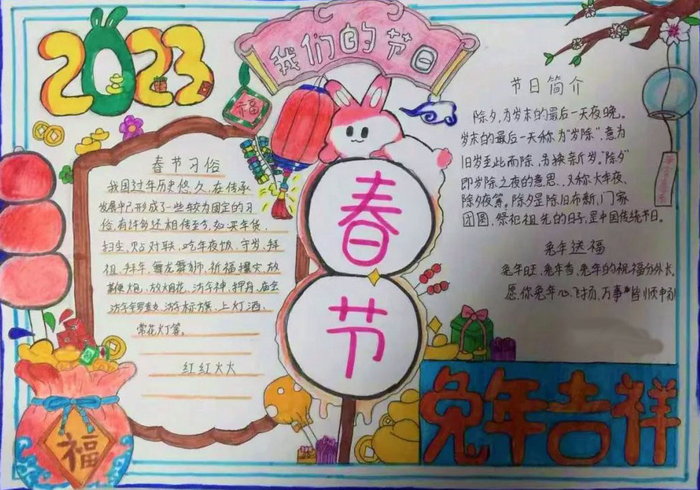 2023
我们的节日
福
春节习俗
我国过年历史悠久,在传承
发展中已形成了一些较为固定的习
俗有许多还相传至今,如买年货,
扫尘,贴对联,吃年夜饭,守岁,拜
祖,拜年,舞龙舞狮,祈福攘灾,放
鞭炮,放烟花,
游标旗,上灯酒,
赏花灯等。
红红火火
春
节
节日简介
除夕,为岁末的最后一天夜晚。
岁末的最后一天称为"岁除",意为
旧岁至此而除,另换新岁。"除夕"
即岁除之夜的意思,又称大年夜、
除夕夜等,除夕是除旧布新,门家
团圆,祭祀祖先的日子,是中国传统节日。
兔年送福
兔年旺,兔年吉,兔年的祝福分外长,
愿,你兔年心飞扬,万事皆顺
兔年吉祥
福